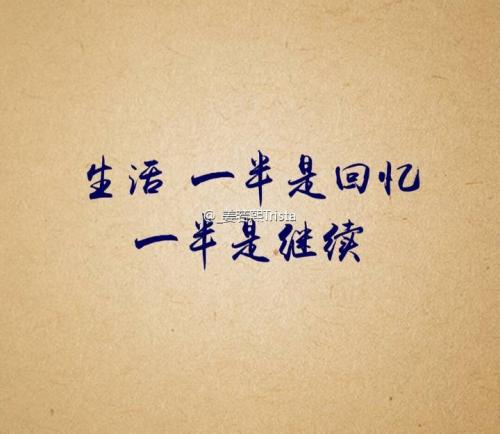 生活 一半是回忆
@_姜蕶熙Trista
一半是继续